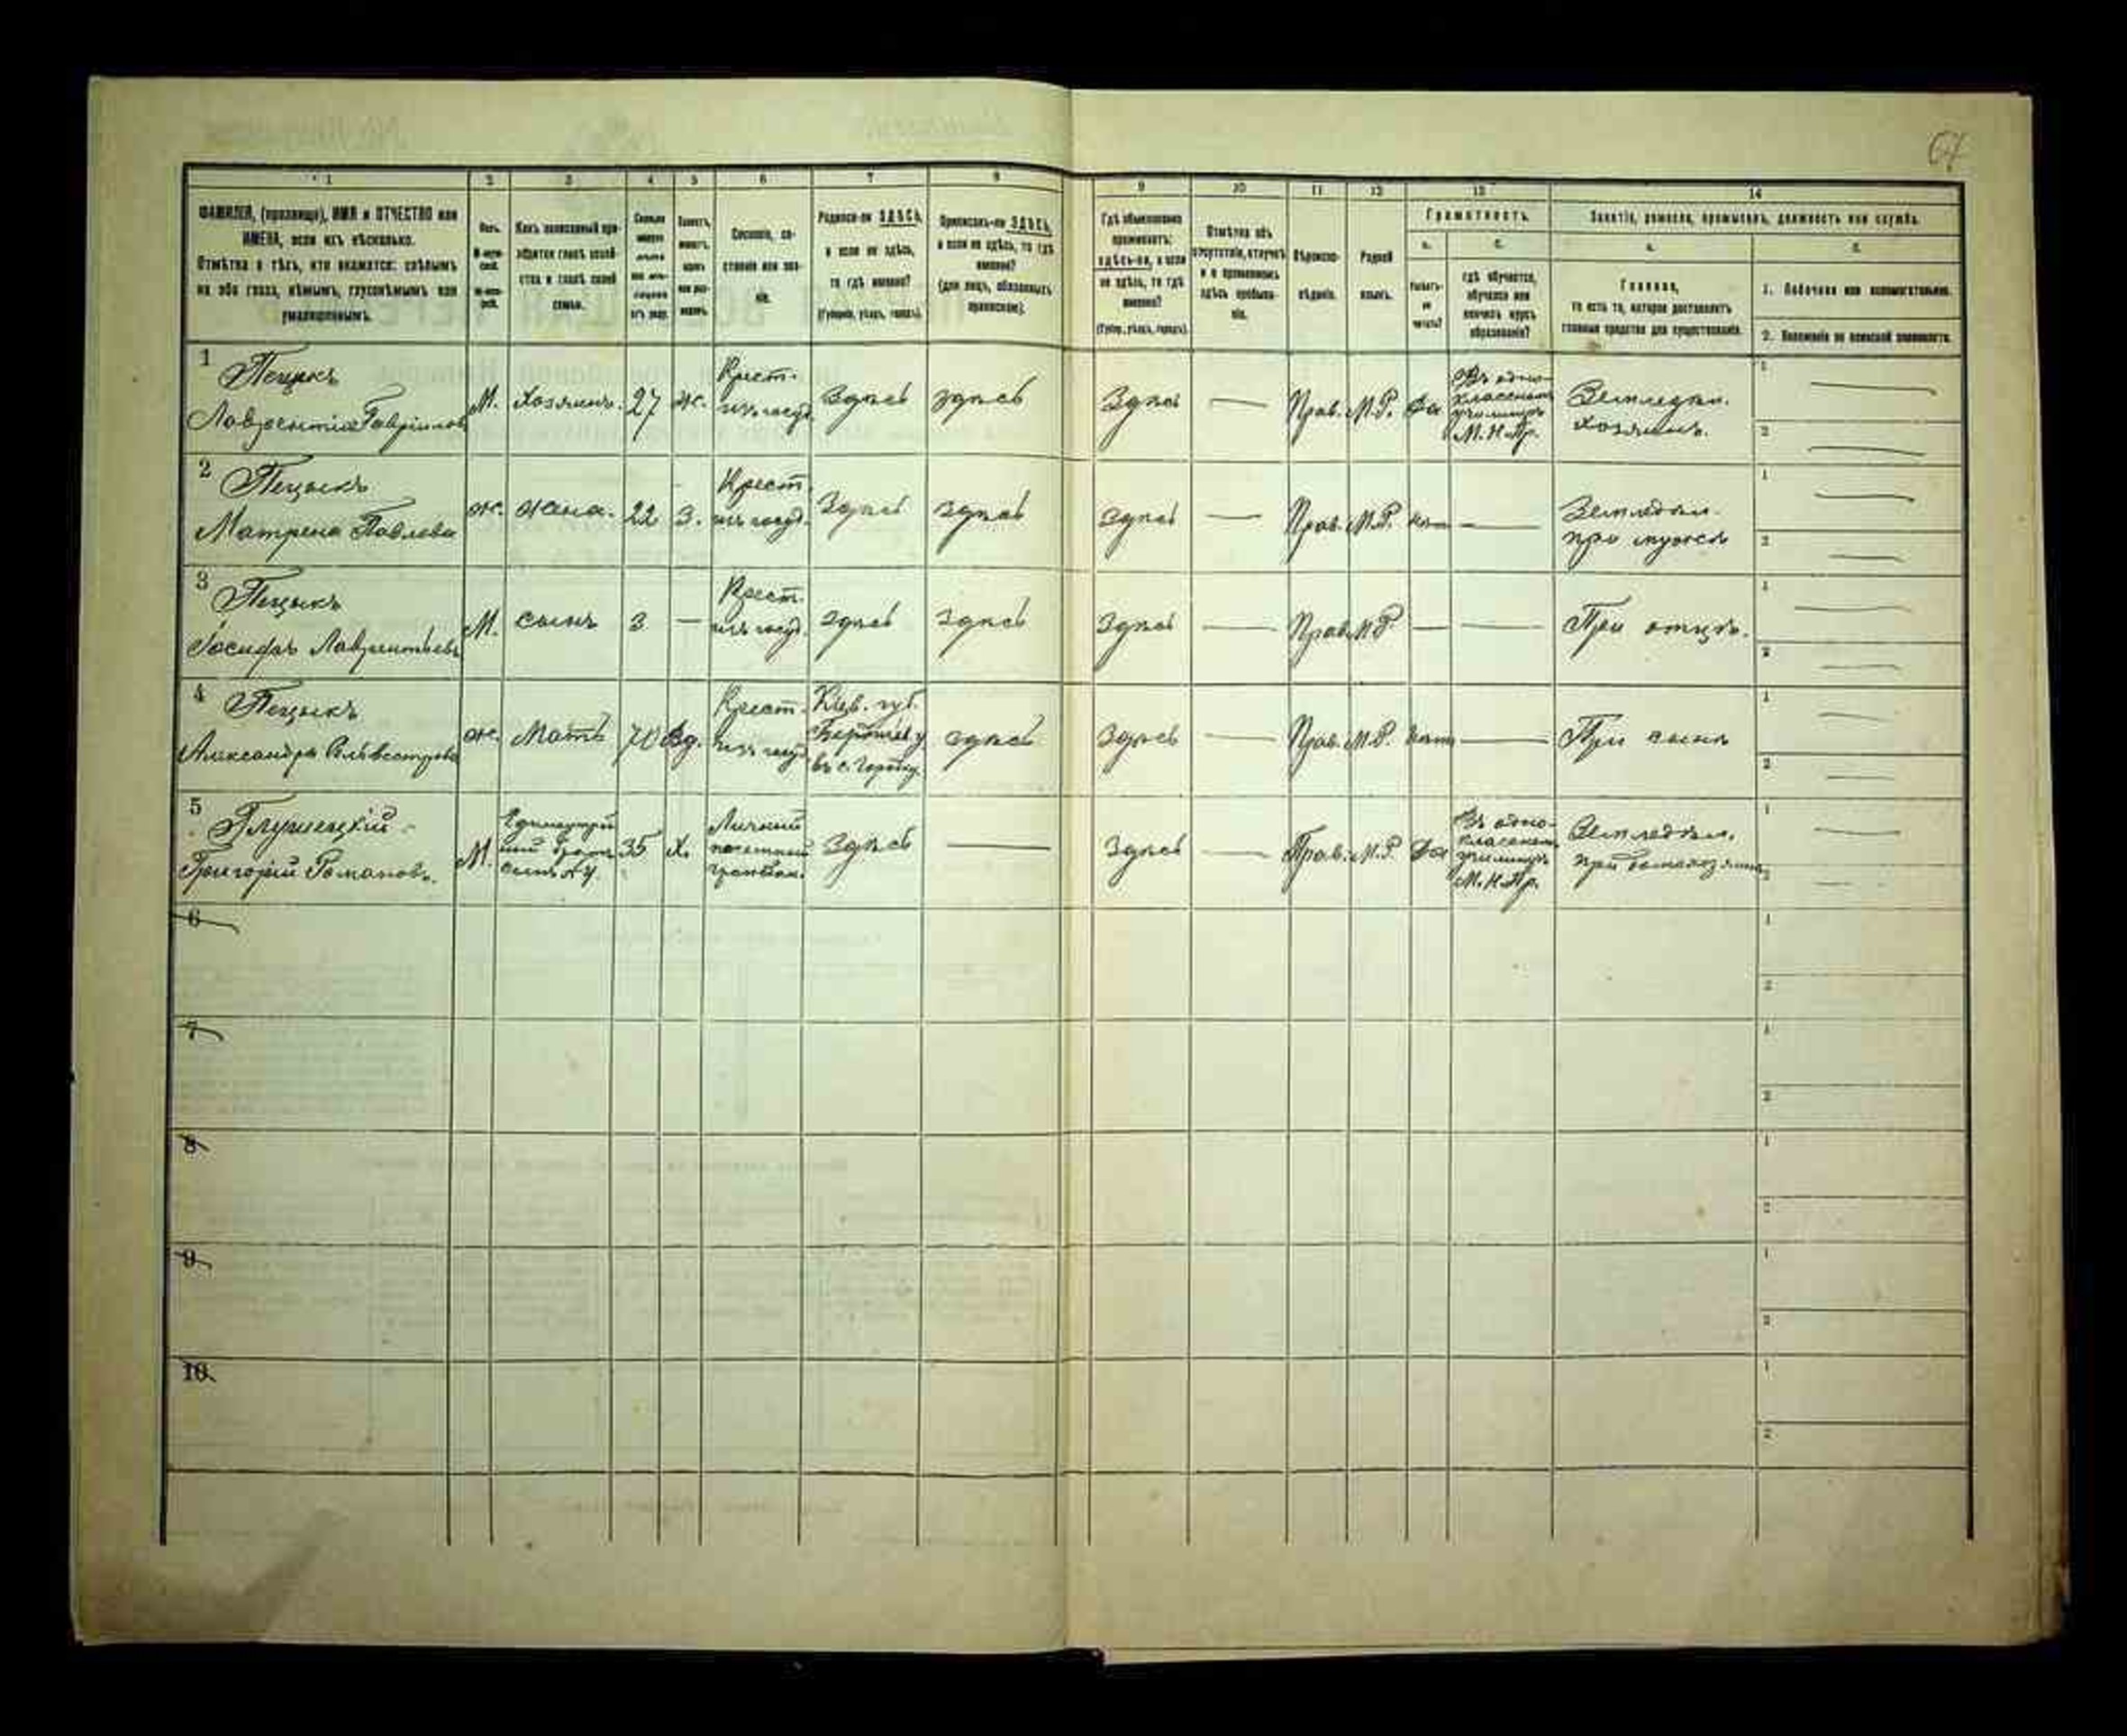 67
1 2 3 4 5 6 7 8 9 10 11 12 13 14
ФАМИЛІЯ, (прозвище), ИМЯ и ОТЧЕСТВО или
ИМЕНА, если ихъ нѣсколько.
Отмѣтка о тѣхъ, кто окажется: слѣпымъ
на оба глаза, нѣмымъ, глухонѣмымъ или
умалишеннымъ.
Полъ.
М-муж-
ской.
Ж-жен-
скій.
Какъ записанный при-
ходится главѣ хозяй-
ства и главѣ своей
семьи.
Сословіе, со-
стояніе или зва-
ніе.
Родился-ли ЗДѢСЬ,
а если не здѣсь,
то гдѣ именно?
(Губернія, уѣздъ, городъ).
Приписанъ-ли ЗДѢСЬ,
а если не здѣсь, то гдѣ
именно?
(для лицъ, обязанныхъ
припиской).
Гдѣ обыкновенно
проживаетъ:
здѣсь-ли, а если
не здѣсь, то гдѣ
именно?
(Губер., уѣздъ, городъ).
Отмѣтка объ
отсутствіи, отлучкѣ
и о временномъ
здѣсь пребыва-
ніи.
Вѣроиспо-
вѣданіе.
Родной
языкъ.
Грамотность.
а.
Умѣетъ-
ли
читать?
б.
гдѣ обучается,
обучался или
кончилъ курсъ
образованія?
Занятіе, ремесло, промыселъ, должность или служба.
а.
Главное,
то есть то, которое доставляетъ
главныя средства для существованія.
б.
1. Побочное или вспомогательное.
2. Положеніе по воинской повинности.
1
Пецыкъ
Лаврентій Гавриловъ
М. Хозяинъ. 27 ж.
Крест.
изъ госуд.
Здѣсь здѣсь Здѣсь — Прав. М.Р. Да
Въ одно-
классномъ
училищѣ
М.Н.Пр.
Земледѣл.
хозяинъ.
1 —
2 —
2
Пецыкъ
Матрена Павлова
ж. жена. 22 З.
Крест.
изъ госуд.
Здѣсь здѣсь здѣсь — Прав. М.Р. —
Земледѣл.
при мужѣ
1 —
2 —
3
Пецыкъ
Іосифъ Лаврентьевъ
М. сынъ 3 —
Крест.
изъ госуд.
здѣсь здѣсь Здѣсь — Прав. М.Р. — —
При отцѣ.
1 —
2 —
4
Пецыкъ
Александра Сильвестрова
ж. Мать 70 Вд.
Крест.
изъ госуд.
Кіев. губ.
въ с.
здѣсь Здѣсь — Прав. М.Р. —
При сынѣ
1 —
2 —
5
Глушецкій
Григорій Романовъ.
М. 35 Х.
Личный
почетный
граждан.
Здѣсь — Здѣсь — Прав. М.Р. Да
Въ одно-
классномъ
училищѣ
М.Н.Пр.
Земледѣл.
при домохозяинѣ
1 —
2 —
6
1
2
7
1
2
8
1
2
9
1
2
10.
1
2